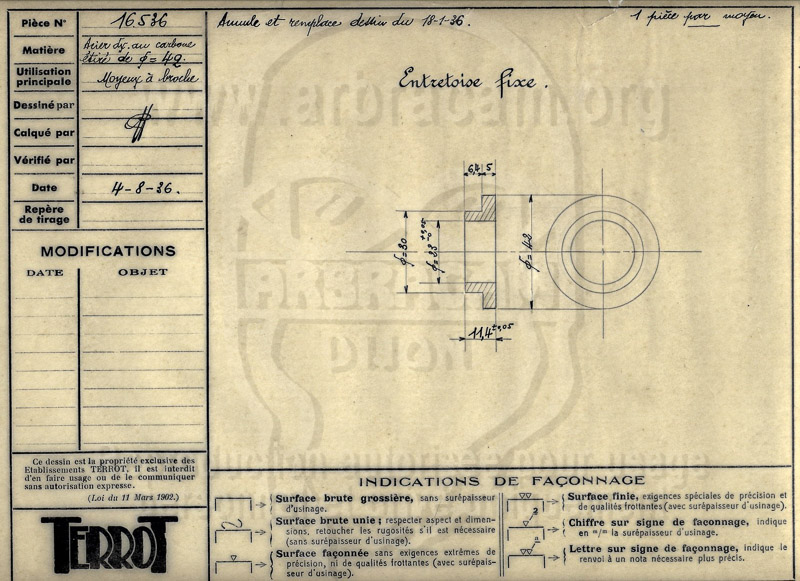 Pièce N° 16.536
Matière Acier Dx. au carbone
étiré de ϕ = 42.
Utilisation
principale Moyeux à broche
Dessiné par
Calqué par
Vérifié par
Date 4-8-36.
Repère
de tirage
MODIFICATIONS
DATE OBJET
Ce dessin est la propriété exclusive des
Etablissements TERROT, il est interdit
d'en faire usage ou de le communiquer
sans autorisation expresse.
(Loi du 11 Mars 1902.)
TERROT
Annule et remplace dessin du 18-1-36.
1 pièce par moyeu.
Entretoise fixe.
6,4 5
ϕ = 30
ϕ = 23
+0,05
-0
ϕ = 42
11,4 ±0,05
www.arbracam.org
DIJON
INDICATIONS DE FAÇONNAGE
Surface brute grossière, sans surépaisseur
d'usinage.
Surface brute unie; respecter aspect et dimen-
sions, retoucher les rugosités s'il est nécessaire
(sans surépaisseur d'usinage).
Surface façonnée sans exigences extrêmes de
précision, ni de qualités frottantes (avec surépais-
seur d'usinage).
Surface finie, exigences spéciales de précision et
de qualités frottantes (avec surépaisseur d'usinage).
2
Chiffre sur signe de faconnage, indique
en m/m la surépaisseur d'usinage.
a
Lettre sur signe de façonnage, indique le
renvoi à un nota nécessaire plus précis.